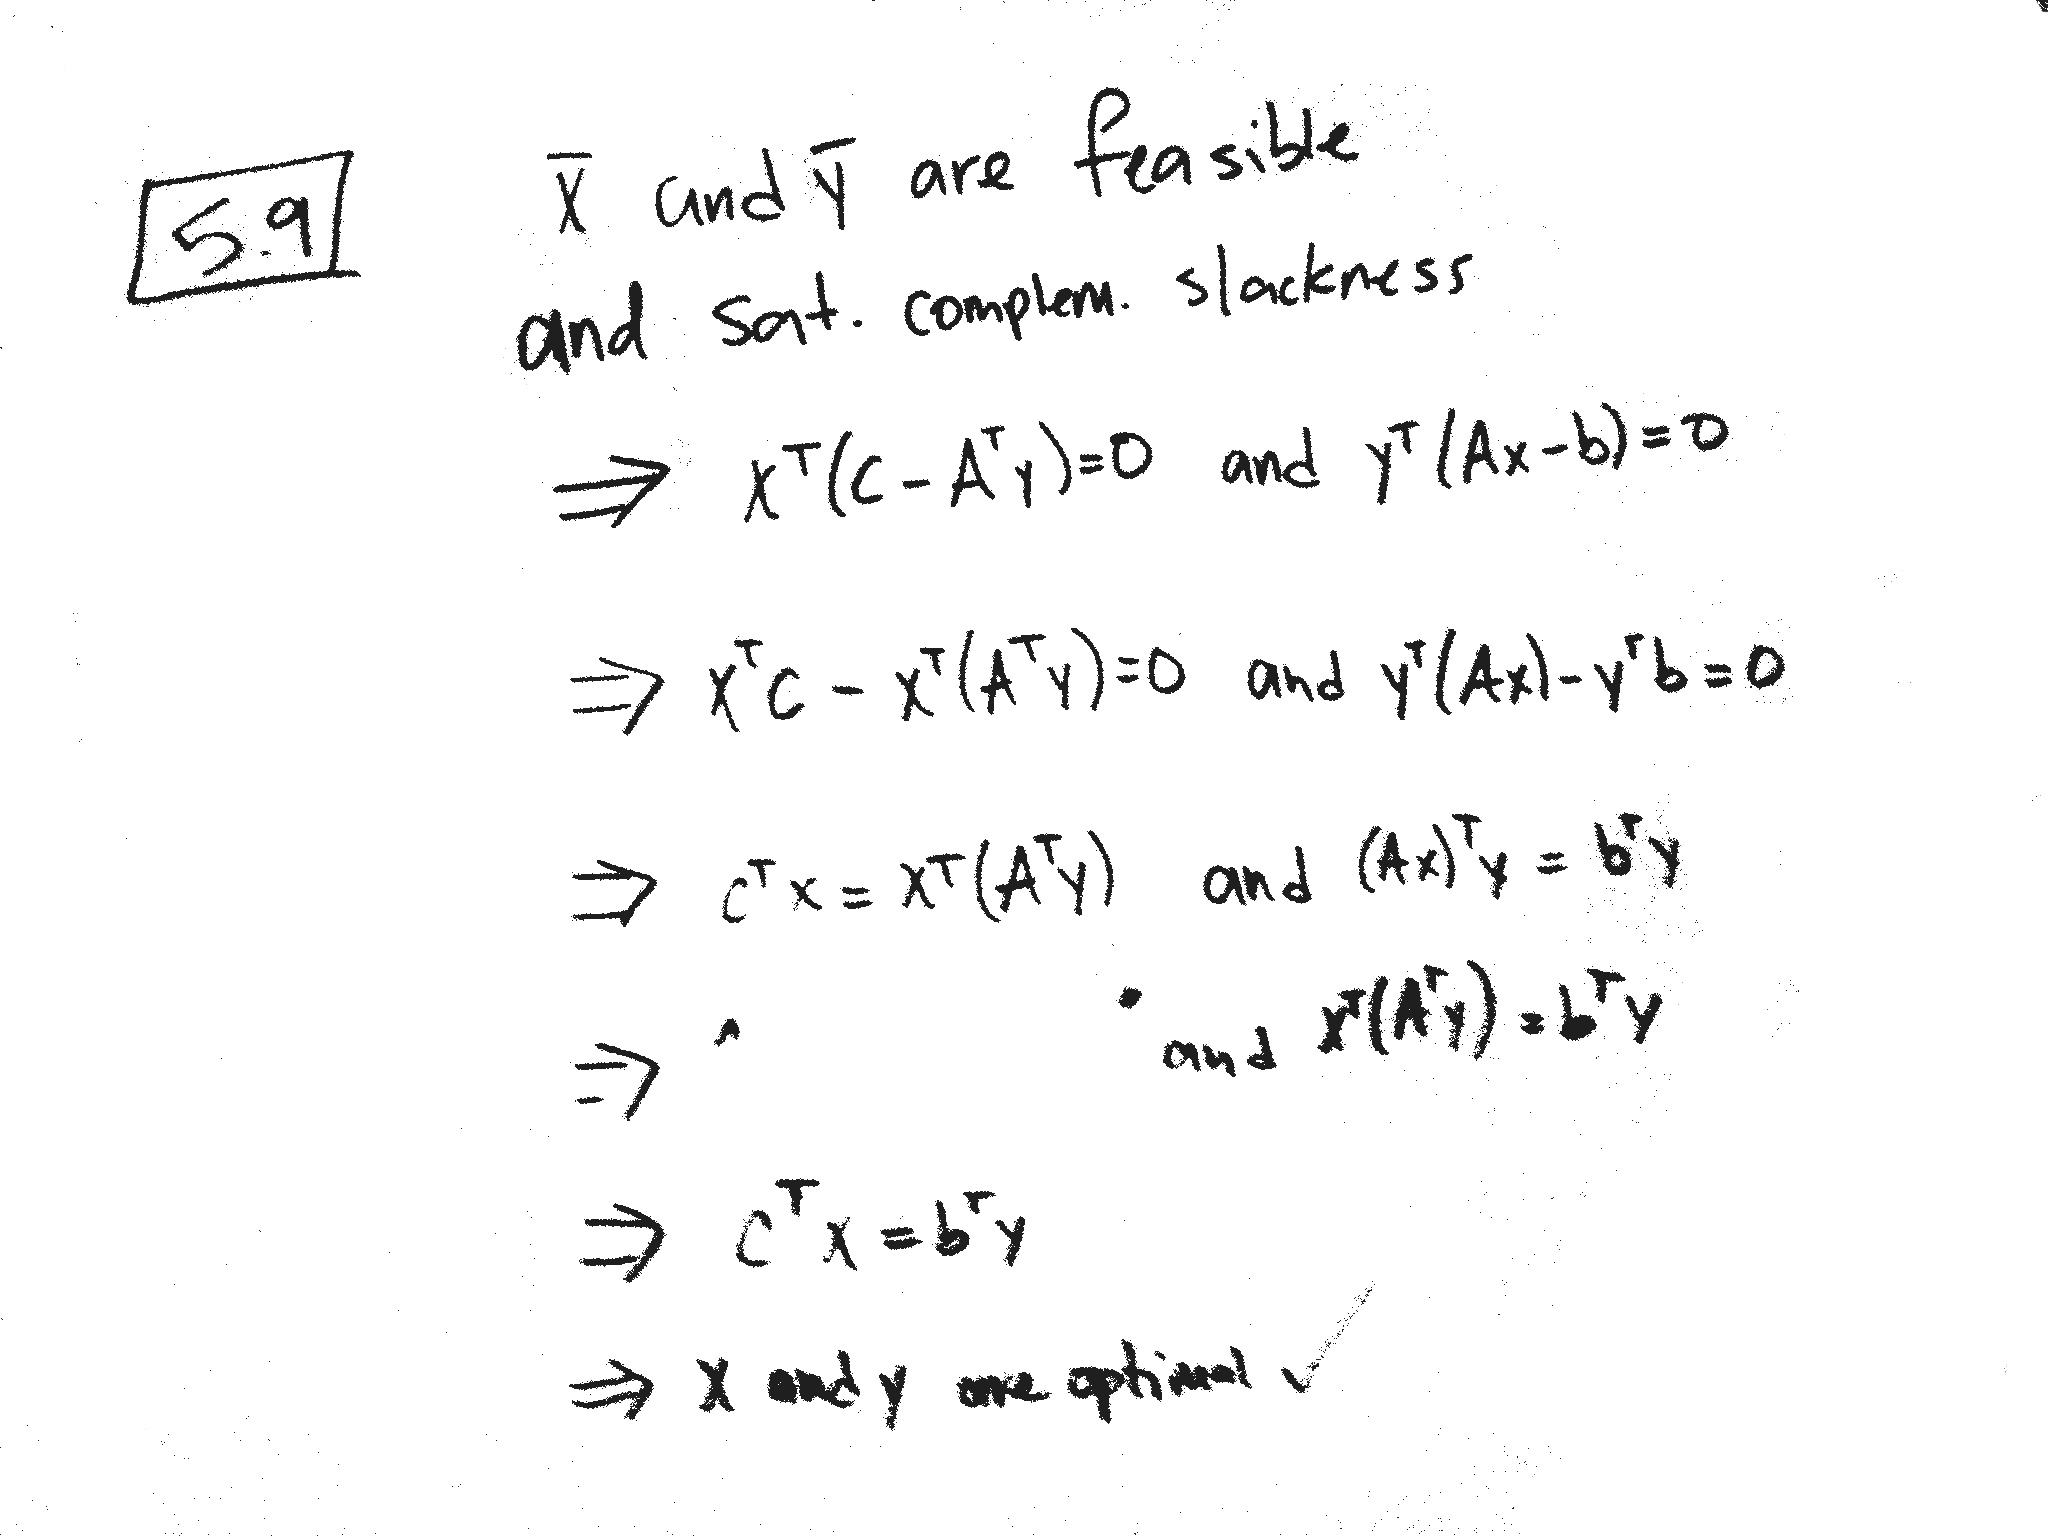 5.9
x̄ and ȳ are feasible
and sat. complem. slackness
⇒ xᵀ(c - Aᵀy)=0 and yᵀ(Ax-b)=0
⇒ xᵀc - xᵀ(Aᵀy)=0 and yᵀ(Ax)-yᵀb=0
⇒ cᵀx = xᵀ(Aᵀy) and (Ax)ᵀy = bᵀy
⇒ and xᵀ(Aᵀy) = bᵀy
⇒ cᵀx = bᵀy
⇒ x and y are optimal ✓